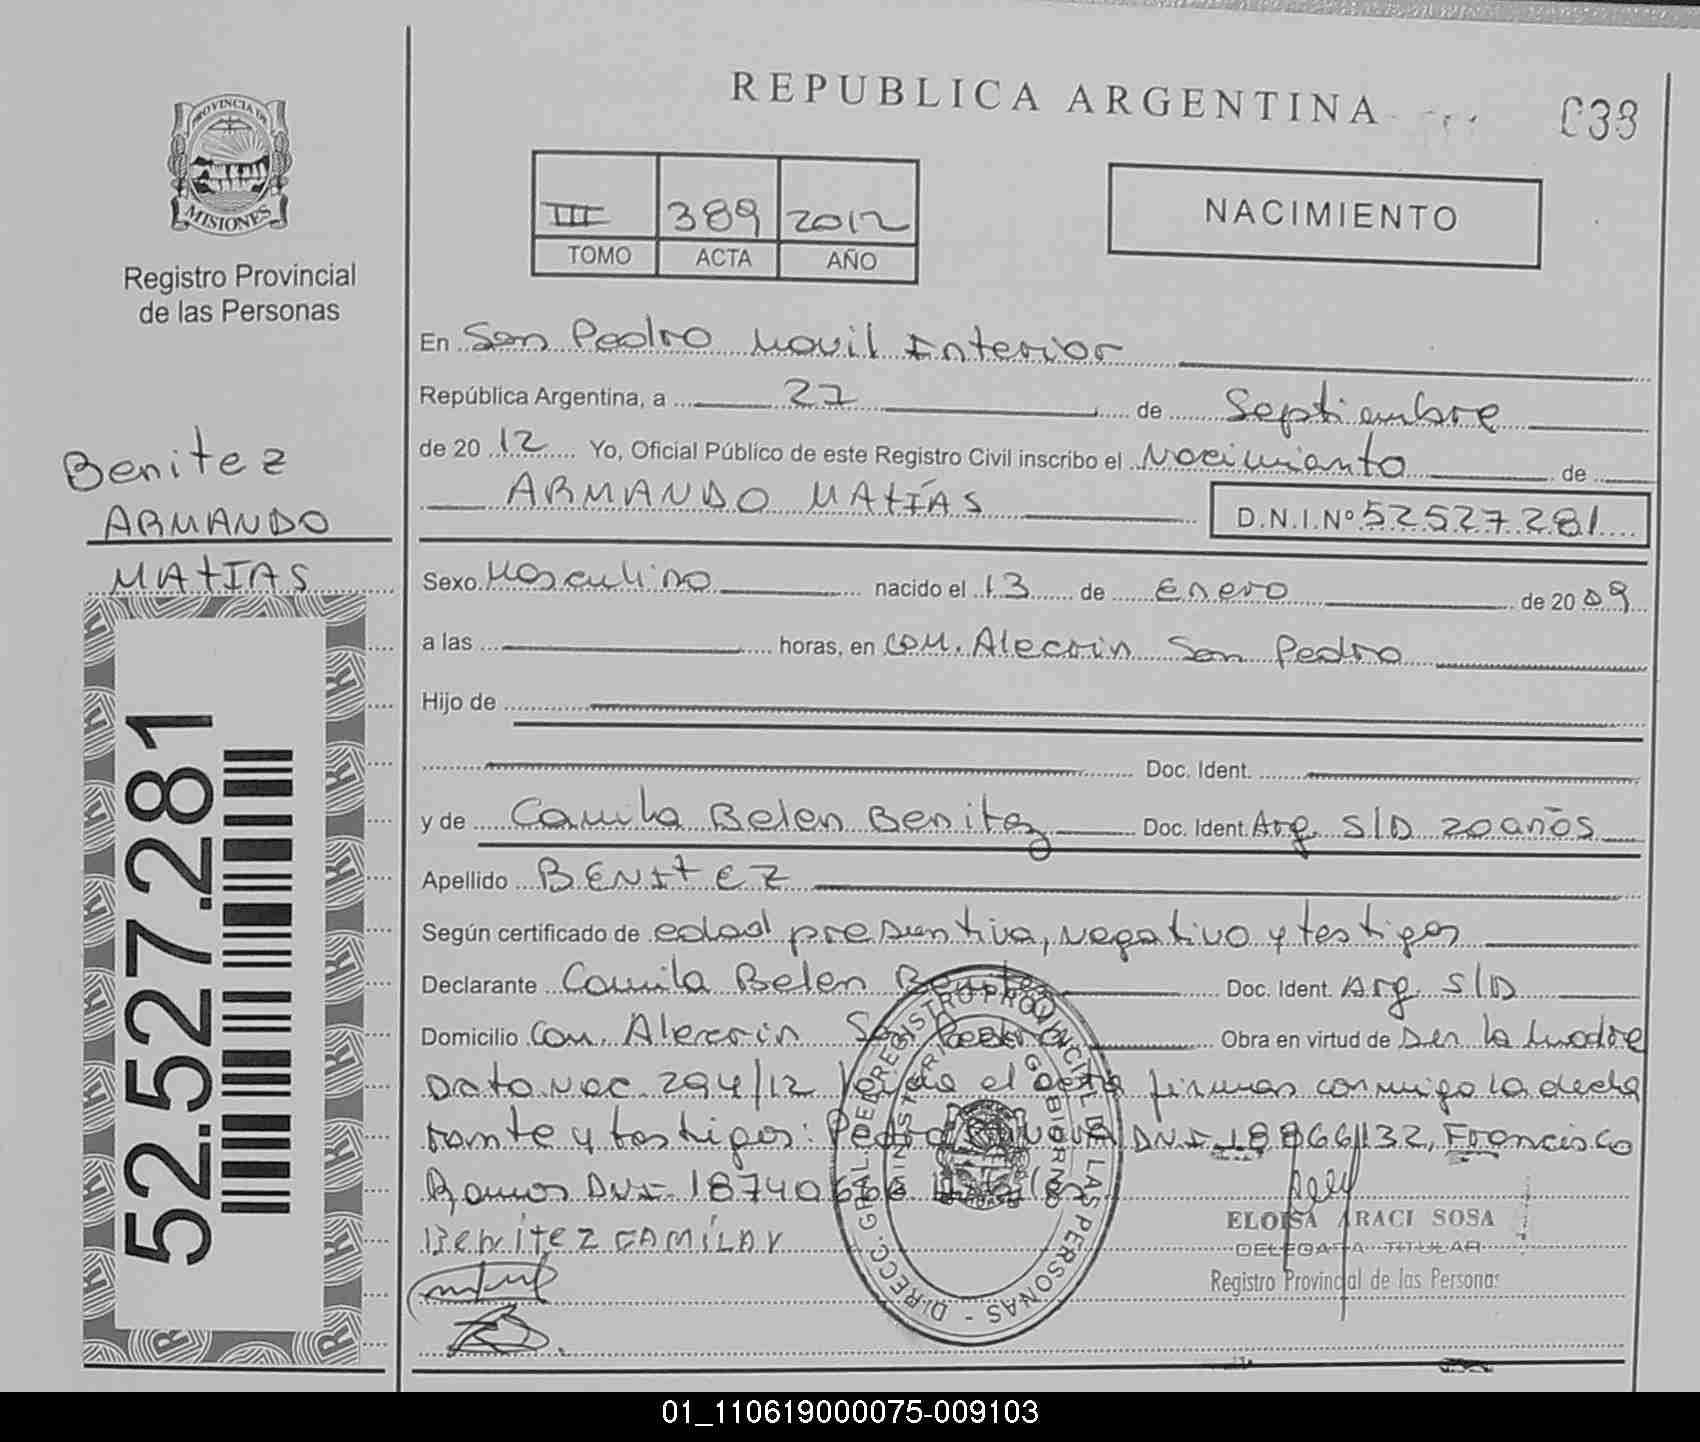 REPUBLICA ARGENTINA
038
PROVINCIA DE
MISIONES
Registro Provincial
de las Personas
III 389 2012
TOMO ACTA AÑO
NACIMIENTO
En San Pedro Movil Interior
República Argentina, a 27 de Septiembre
de 2012 Yo, Oficial Público de este Registro Civil inscribo el Nacimianto de
ARMANDO MATÍAS D.N.I.Nº 52527281
Benitez
ARMANDO
MATIAS
52.527.281
Sexo Masculino nacido el 13 de Enero de 2009
a las horas, en COM. Alecrin San Pedro
Hijo de
Doc. Ident.
y de Camila Belen Benitez Doc. Ident. Arg. S/D 20 años
Apellido BENITEZ
Según certificado de edad presuntiva, negativo y testigos
Declarante Camila Belen Benitez Doc. Ident. Arg. S/D
Domicilio Com. Alecrin San Pedro Obra en virtud de ser la madre
Dato Nac. 294/12 leida el acta firman conmigo la decla
rante y testigos: Pedro DNI 18866132, Francisco
Ramos DNI 18740666
BENÍTEZ CAMÍLA
DIRECC. GRAL. DEL REGISTRO PROVINCIAL DE LAS PERSONAS -
MINISTERIO GOBIERNO
ELOISA ARACI SOSA
DELEGADA TITULAR
Registro Provincial de las Personas
01_110619000075-009103